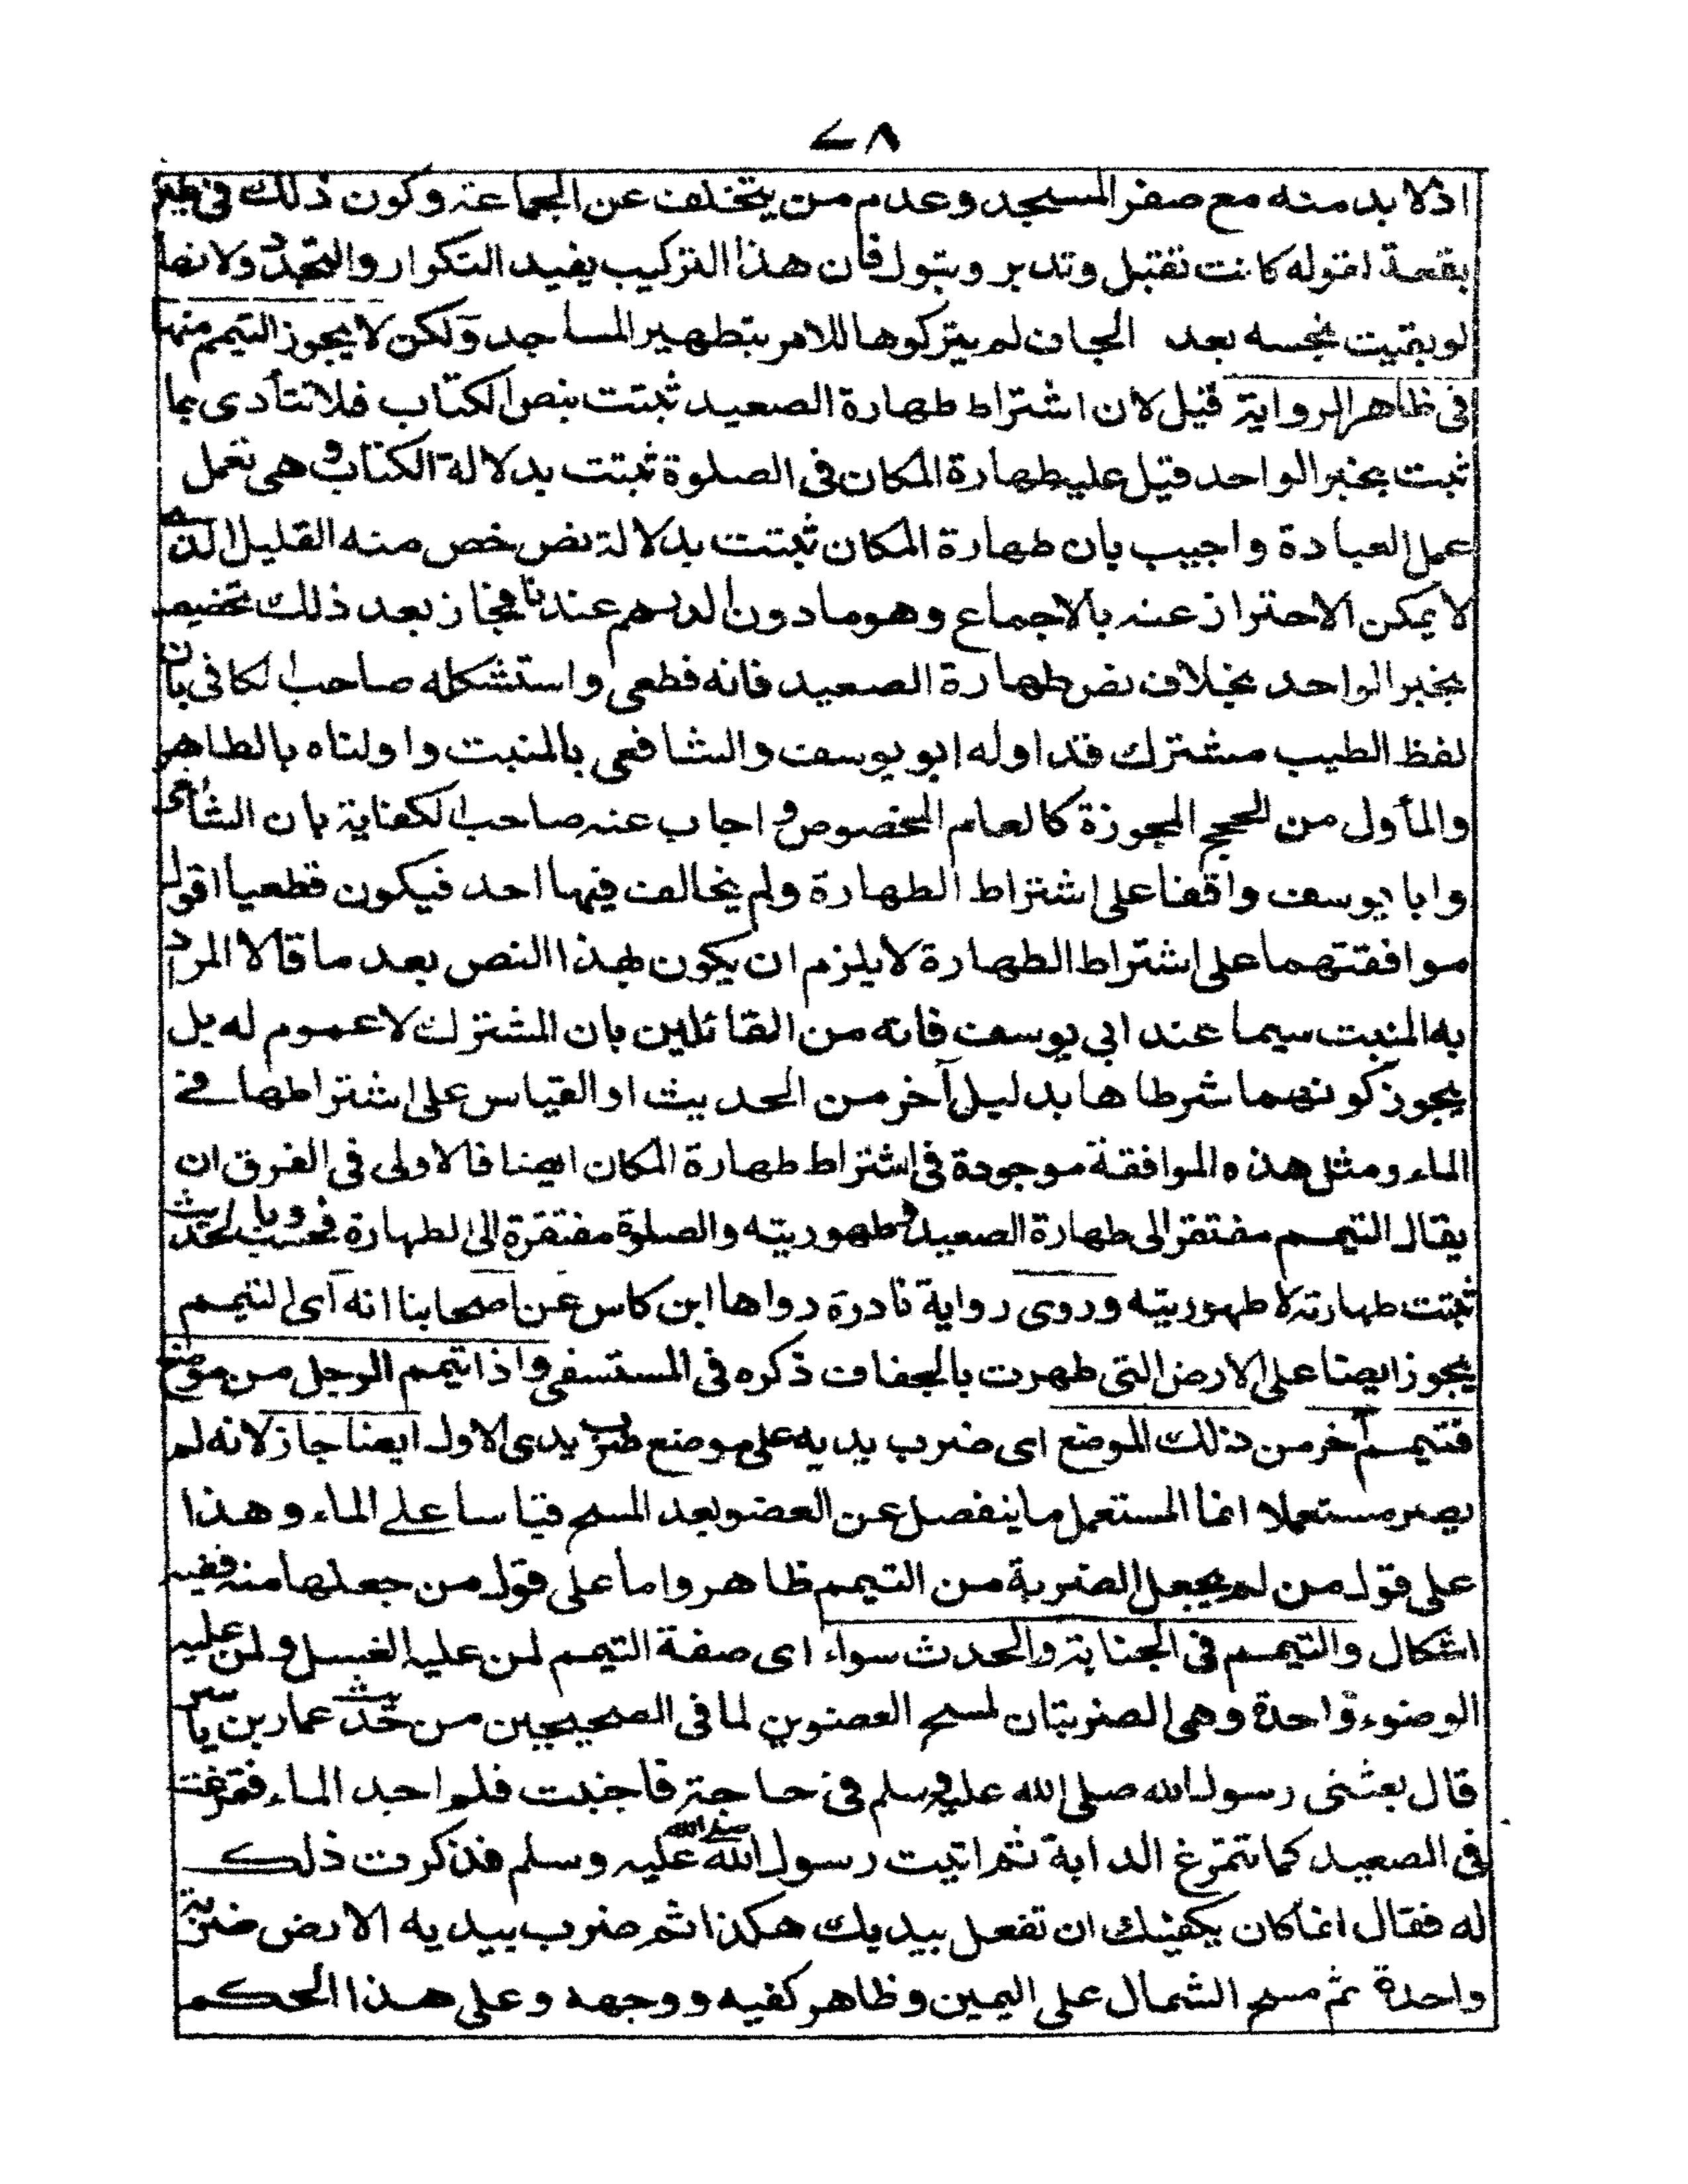 ٧٨
اذلا بد منه مع صغر المسجد وعدم من يتخلف عن الجماعة وكون ذلك في غير
بقعة لقوله كانت تقبل وتدبر وتبول فان هذا التركيب يفيد التكرار والتجدد ولانها
لو بقيت نجسه بعد الجفاف لم يتركوها للامر بتطهير المساجد ولكن لا يجوز التيمم منها
في ظاهر الرواية قيل لان اشتراط طهارة الصعيد ثبتت بنص الكتاب فلا تتأدى بما
ثبت بخبر الواحد قيل عليه طهارة المكان في الصلوة ثبتت بدلالة الكتاب وهي تعمل
عمل العبادة واجيب بان طهارة المكان ثبتت بدلالة نص خص منه القليل الذي
لا يمكن الاحتراز عنه بالاجماع وهو ما دون الدرهم عندنا فجاز بعد ذلك تخصيصه
بخبر الواحد بخلاف نص طهارة الصعيد فانه قطعي واستشكله صاحب الكافي بان
لفظ الطيب مشترك قد اوله ابو يوسف والشافعي بالمنبت واولناه بالطاهر
والمأول من الحجج المجوزة كالعام المخصوص واجاب عنه صاحب الكفاية بان الشافعي
وابا يوسف واقفنا على اشتراط الطهارة ولم يخالف فيها احد فيكون قطعيا اقول
موافقتهما على اشتراط الطهارة لا يلزم ان يكون لهذا النص بعد ما قالا المراد
به المنبت سيما عند ابي يوسف فانه من القائلين بان المشترك لا عموم له بل
يجوز كونهما شرطا ها بدليل آخر من الحديث او القياس على اشتراطها في
الماء ومثل هذه الموافقة موجودة في اشتراط طهارة المكان ايضا فالاولى في الفرق ان
يقال التيمم مفتقر الى طهارة الصعيد وطهوريته والصلوة مفتقرة الى الطهارة فحسب وبالحديث
ثبتت طهارته لا طهوريته وروى رواية نادرة رواها ابن كاس عن اصحابنا انه اى التيمم
يجوز ايضا على الارض التى طهرت بالجفاف ذكره في المستسفى واذا تيمم الرجل من موضع
فتيمم آخر من ذلك الموضع اى ضرب يديه على موضع ضرب يدى الاول ايضا جاز لانه لم
يصر مستعملا انما المستعمل ما ينفصل عن العضو بعد المسح قياسا على الماء وهذا
على قول من لم يجعل الضربة من التيمم ظاهر واما على قول من جعلها منه ففيه
اشكال والتيمم في الجنابة والحدث سواء اى صفة التيمم لمن عليه الغسل ولمن عليه
الوضوء واحدة وهي الضربتان لمسح العضوين لما في الصحيحين من حديث عمار بن ياسر
قال بعثنى رسول الله صلى الله عليه وسلم في حاجة فاجنبت فلم اجد الماء فتمرغت
في الصعيد كما تتمرغ الدابة ثم اتيت رسول الله صلى الله عليه وسلم فذكرت ذلك
له فقال انما كان يكفيك ان تفعل بيديك هكذا ثم ضرب بيديه الارض ضربة
واحدة ثم مسح الشمال على اليمين وظاهر كفيه ووجهه وعلى هذا الحكم